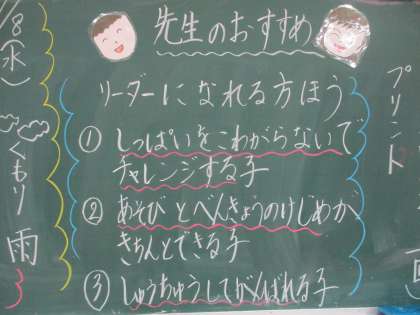 先生のおすすめ
リーダーになれる方ほう
① しっぱいをこわがらないで
チャレンジする子
② あそびとべんきょうのけじめが
きちんとできる子
③ しゅうちゅうしてがんばれる子
/8(水)
くもり
雨
プリント